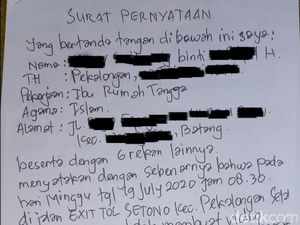 SURAT PERNYATAAN
Yang bertanda tangan dibawah ini saya:
Nama : binti H.
TH : Pekalongan,
Pekerjaan : Ibu Rumah Tangga
Agama : Islam.
Alamat : JL.
Kec. , Batang.
beserta dengan 6 rekan lainnya.
menyatakan dengan sebenarnya bahwa pada
hari Minggu tgl 19 July 2020 jam 08.30.
di jalan EXIT TOL SETONO Kec. Pekalongan
membuat
detikcom